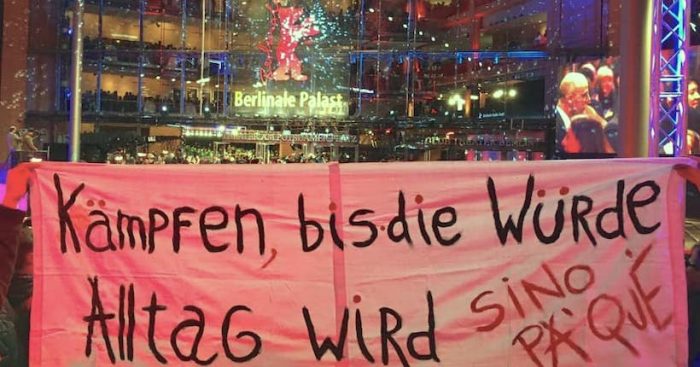 Berlinale Palast
Kämpfen, bis die Würde
Alltag wird
SINO
PA' QUÉ